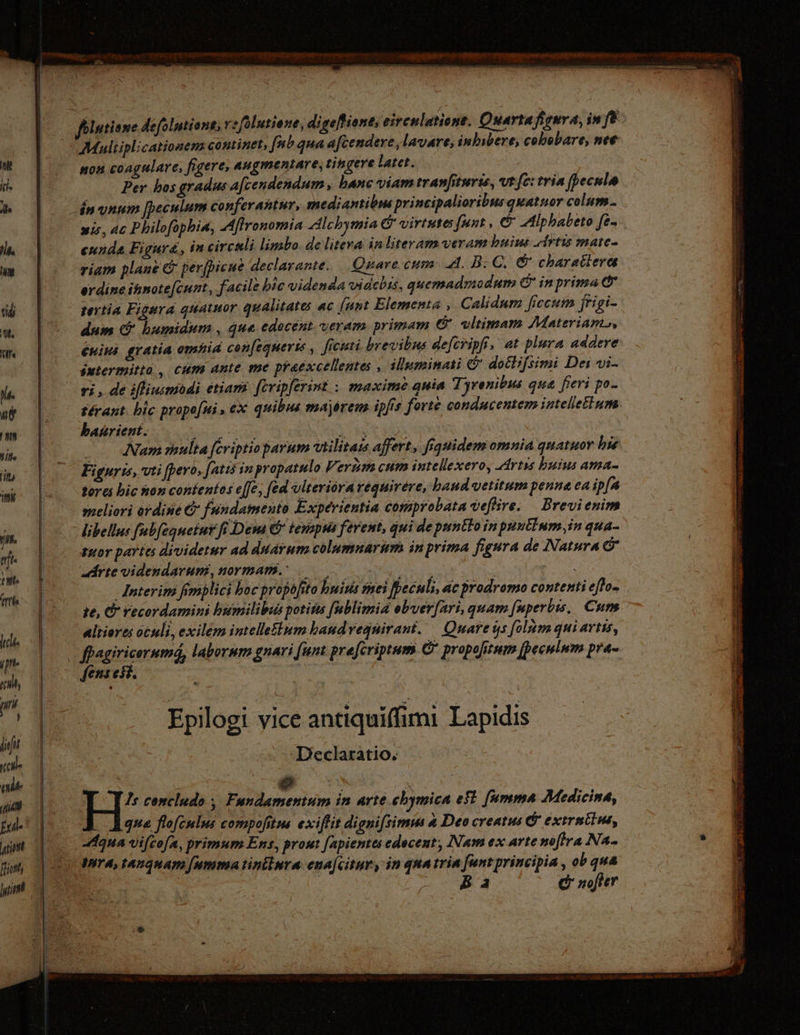 ſolutione deſolutione, reſolutione, digeſtione, circulatione. Quarta figura, in ſe
Multiplicationem continet, ſub qua aſcendere, lavare, inhibere, cohobare, nec
non coagulare, figere, augmentare, tingere latet.
Per hos gradus aſcendendum, hanc viam tranſituris, ut ſc: tria ſpecula
in unum ſpeculum conferantur, mediantibus principalioribus quatuor colum-
nis, ac Philoſophia, Aſtronomia Alchymia & virtutes ſunt, & Alphabeto ſe-
cunda Figurâ, in circuli limbo de litera in literam veram huius Artis mate-
riam planè & perſpicuè declarante. Quare cum A. B. C, & characteres
ordine innoteſcunt, facile hic videnda videbis, quemadmodum & in prima &
tertia Figura quatuor qualitates ac ſunt Elementa, Calidum ſiccum frigi-
dum & humidum, quæ edocent veram primam & ultimam Materiam,
cuius gratia omnia conſequeris, ſicuti brevibus deſcripſi, at plura addere
intermitto, cum ante me præexcellentes, illuminati & doctiſsimi Dei vi-
ri, de iſtiusmodi etiam ſcripſerint: maximè quia Tyronibus quæ fieri po-
terant hic propoſui, ex quibus majorem ipſis fortè conducentem intellectum
haurient.
Nam multa ſcriptio parum utilitais affert, ſiquidem omnia quatuor his
Figuris, uti ſpero, ſatis in propatulo Verùm cum intellexero, Artis huius ama-
tores hic non contentos eſſe, ſed ulteriora requirere, haud vetitum penna ea ipſa
meliori ordine & fundamento Experientia comprobata veſtire. Brevi enim
libellus ſubſequetur ſi Deus & tempus ferent, qui de puncto in punctum, in qua-
tuor partes dividetur ad duarum columnarum in prima figura de Natura &
Arte videndarum, normam.
Interim ſimplici hoc propoſito huius mei ſpeculi, ac prodromo contenti eſto-
te, & recordamini humilibus potius ſublimia obverſari, quam ſuperbis, Cum
altiores oculi, exilem intellectum haud requirant. Quare ijs ſolùm qui artis,
ſpagiricorumq́, laborum gnari ſunt præſcriptum & propoſitum ſpeculum præ-
ſens eſt.
Epilogi vice antiquiſſimi Lapidis
Declaratio.
HIs concludo, Fundamentum in arte chymica eſt ſumma Medicina,
quæ floſculus compoſitus exiſtit digniſsimus à Deo creatus & extructus,
Aqua viſcoſa, primum Ens, prout ſapientes edocent, Nam ex arte noſtra Na-
tura, tanquam ſumma tinctura enaſcitur, in qua tria ſunt principia, ob qua
B 2 & noſter